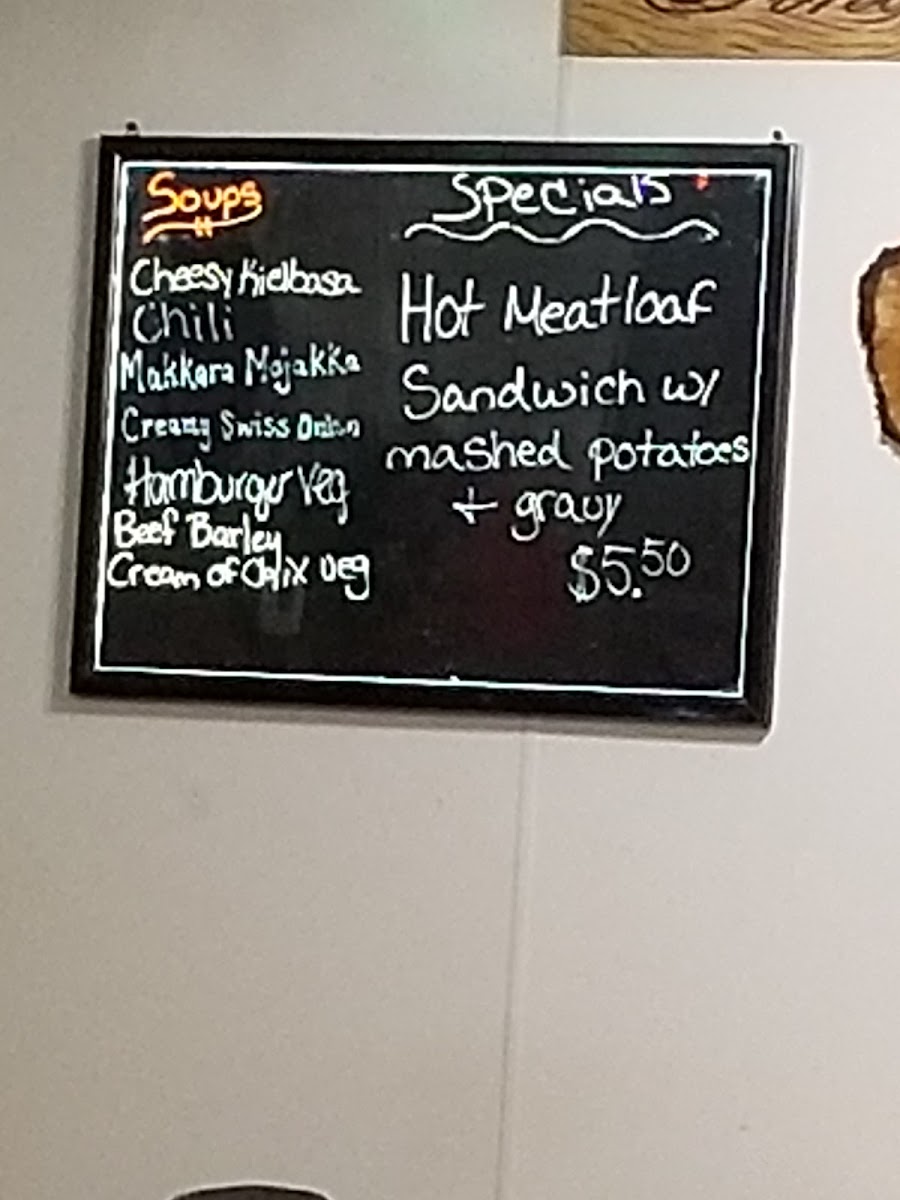 Soups
Cheesy Kielbasa
Chili
Makkara Mojakka
Creamy Swiss Onion
Hamburger Veg
Beef Barley
Cream of Chix Veg
Specials
Hot Meatloaf
Sandwich w/
mashed potatoes
+ gravy
$5.50